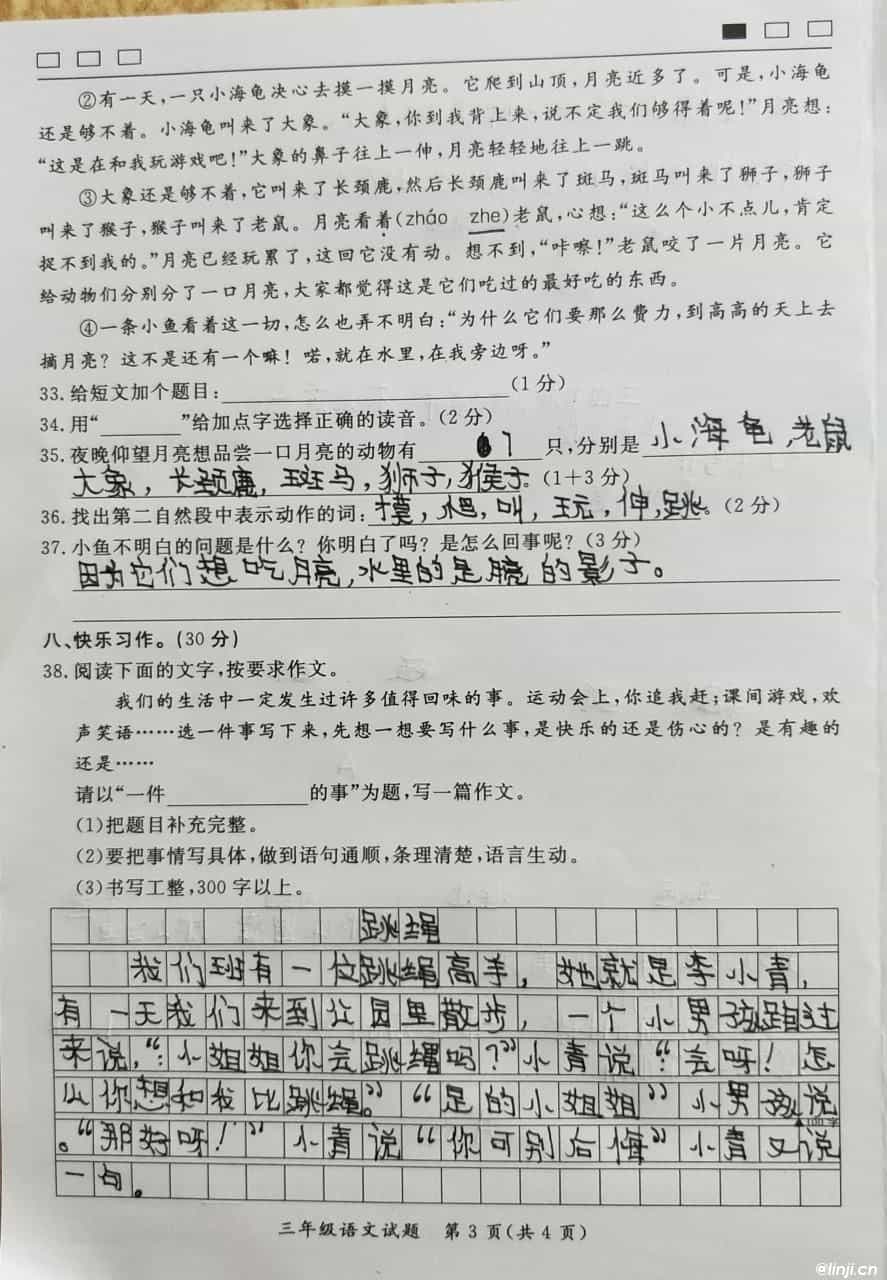 ②有一天,一只小海龟决心去摸一摸月亮。它爬到山顶,月亮近多了。可是,小海龟
还是够不着。小海龟叫来了大象。“大象,你到我背上来,说不定我们够得着呢!”月亮想:
“这是在和我玩游戏吧!”大象的鼻子往上一伸,月亮轻轻地往上一跳。
③大象还是够不着,它叫来了长颈鹿,然后长颈鹿叫来了斑马,斑马叫来了狮子,狮子
叫来了猴子,猴子叫来了老鼠。月亮看着(zháo zhe)老鼠,心想:“这么个小不点儿,肯定
捉不到我的。”月亮已经玩累了,这回它没有动。想不到,“咔嚓!”老鼠咬了一片月亮。它
给动物们分别分了一口月亮,大家都觉得这是它们吃过的最好吃的东西。
④一条小鱼看着这一切,怎么也弄不明白:“为什么它们要那么费力,到高高的天上去
摘月亮?这不是还有一个嘛!喏,就在水里,在我旁边呀。”
33.给短文加个题目:(1分)
34.用“ ”给加点字选择正确的读音。(2分)
35.夜晚仰望月亮想品尝一口月亮的动物有 7 只,分别是 小海龟,老鼠
大象,长颈鹿,斑马,狮子,猴子。(1+3分)
36.找出第二自然段中表示动作的词:摸,爬,叫,玩,伸,跳。(2分)
37.小鱼不明白的问题是什么?你明白了吗?是怎么回事呢?(3分)
因为它们想吃月亮,水里的是月亮的影子。
八、快乐习作。(30分)
38.阅读下面的文字,按要求作文。
我们的生活中一定发生过许多值得回味的事。运动会上,你追我赶;课间游戏,欢
声笑语……选一件事写下来,先想一想要写什么事,是快乐的还是伤心的?是有趣的
还是……
请以“一件 的事”为题,写一篇作文。
(1)把题目补充完整。
(2)要把事情写具体,做到语句通顺,条理清楚,语言生动。
(3)书写工整,300字以上。
跳绳
我们班有一位跳绳高手,她就是李小青,
有一天我们来到公园里散步,一个小男孩跑过
来说,“:小姐姐你会跳绳吗?”小青说“:会呀!怎
么你想和我比跳绳。”“是的小姐姐”小男孩说
。“那好呀!”小青说“你可别后悔”小青又说
100字
一句。
三年级语文试题 第3页(共4页)
@linji.cn